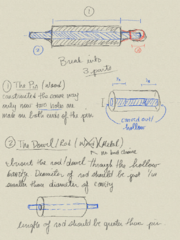 ①
②
③
Break into
3 parts
① The Pin (wood)
constructed the same way
only now two holes are
made on both ends of the pin
carved out/
hollow
② The Dowel/Rod (wood)(Metal)
insert the rod/dowel through the hollow
cavity. Diameter of rod should be just
smaller than diameter of cavity
length of rod should be greater than pin